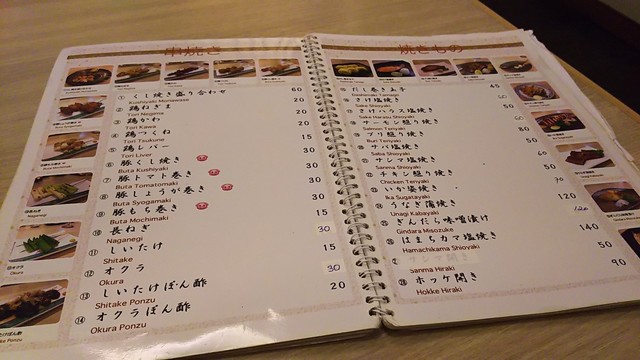 串焼き
① くし焼き盛り合わせ 60
Kushiyaki Moriawase
② 鶏ねぎま 30
Tori Negima
③ 鶏かわ 20
Tori Kawa
④ 鶏つくね
Tori Tsukune
⑤ 鶏レバー 15
Tori Liver
⑥ 豚くし焼き 30
Buta Kushiyaki
⑦ 豚トマト巻き 30
Buta Tomatomaki
⑧ 豚しょうが巻き 30
Buta Syogamaki
⑨ 豚もち巻き 30
Buta Mochimaki
⑩ 長ねぎ 15
Naganegi
⑪ しいたけ 30
Shitake
⑫ オクラ 15
Okura
⑬ しいたけぽん酢 30
Shitake Ponzu
⑭ オクラぽん酢 20
Okura Ponzu
焼きもの
だし巻き玉子 45
Dashimaki Tamago
さけ塩焼き
Sake Shioyaki
さけハラス塩焼き
Sake Harasu Shioyaki
サーモン照り焼き
Salmon Teriyaki
ブリ照り焼き 80
Buri Teriyaki
サバ塩焼き
Saba Shioyaki
サンマ塩焼き 60
Sanma Shioyaki
チキン照り焼き 50
Chicken Teriyaki
いか姿焼き 70
Ika Sugatayaki
うなぎ蒲焼き 120
Unagi Kabayaki
ぎんだら味噌漬け
Gindara Misozuke
はまちカマ塩焼き 140
Hamachikama Shioyaki
50
Sanma Hiraki
㉘ ホッケ開き 90
Hokke Hiraki